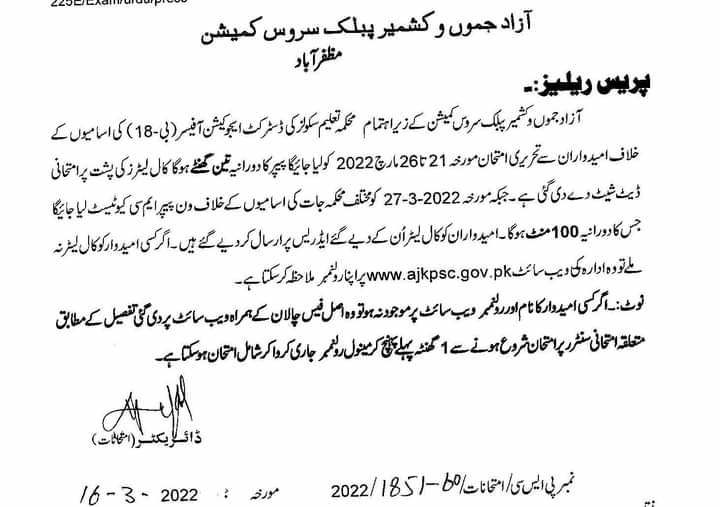 225E/Exam/urdu/press
آزاد جموں و کشمیر پبلک سروس کمیشن
مظفرآباد
پریس ریلیز:۔
آزاد جموں و کشمیر پبلک سروس کمیشن کے زیر اہتمام محکمہ تعلیم سکولز کی ڈسٹرکٹ ایجوکیشن آفیسر (بی-18) کی اسامیوں کے
خلاف امیدواران سے تحریری امتحان مورخہ 21 تا 26 مارچ 2022 کو لیا جائیگا پیپر کا دورانیہ تین گھنٹے ہوگا کال لیٹرز کی پشت پر امتحانی
ڈیٹ شیٹ دے دی گئی ہے۔ جبکہ مورخہ 2022-3-27 کو مختلف محکمہ جات کی اسامیوں کے خلاف ون پیپر ایم سی کیو ٹیسٹ لیا جائیگا
جس کا دورانیہ 100 منٹ ہوگا۔ امیدواران کو کال لیٹر اُن کے دیے گئے ایڈریس پر ارسال کر دیے گئے ہیں۔ اگر کسی امیدوار کو کال لیٹر نہ
ملے تو وہ ادارہ کی ویب سائٹ www.ajkpsc.gov.pk پر اپنا رولنمبر ملاحظہ کر سکتا ہے۔
نوٹ:۔ اگر کسی امیدوار کا نام اور رولنمبر ویب سائٹ پر موجود نہ ہو تو وہ اصل فیس چالان کے ہمراہ ویب سائٹ پر دی گئی تفصیل کے مطابق
متعلقہ امتحانی سنٹر پر امتحان شروع ہونے سے 1 گھنٹہ پہلے پہنچ کر مینول رولنمبر جاری کروا کر شامل امتحان ہو سکتا ہے۔
ڈائریکٹر (امتحانات)
نمبر پی ایس سی/امتحانات/1851-60/2022
مورخہ : 16-3-2022